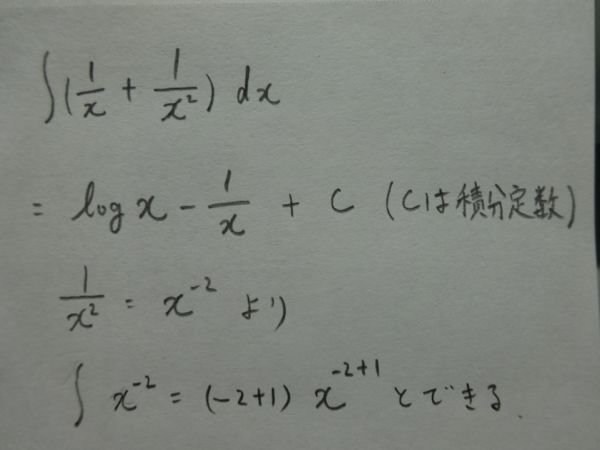 ∫(1/x + 1/x²) dx
= log x - 1/x + C (Cは積分定数)
1/x² = x⁻² より
∫ x⁻² = (-2+1) x⁻²⁺¹ とできる.